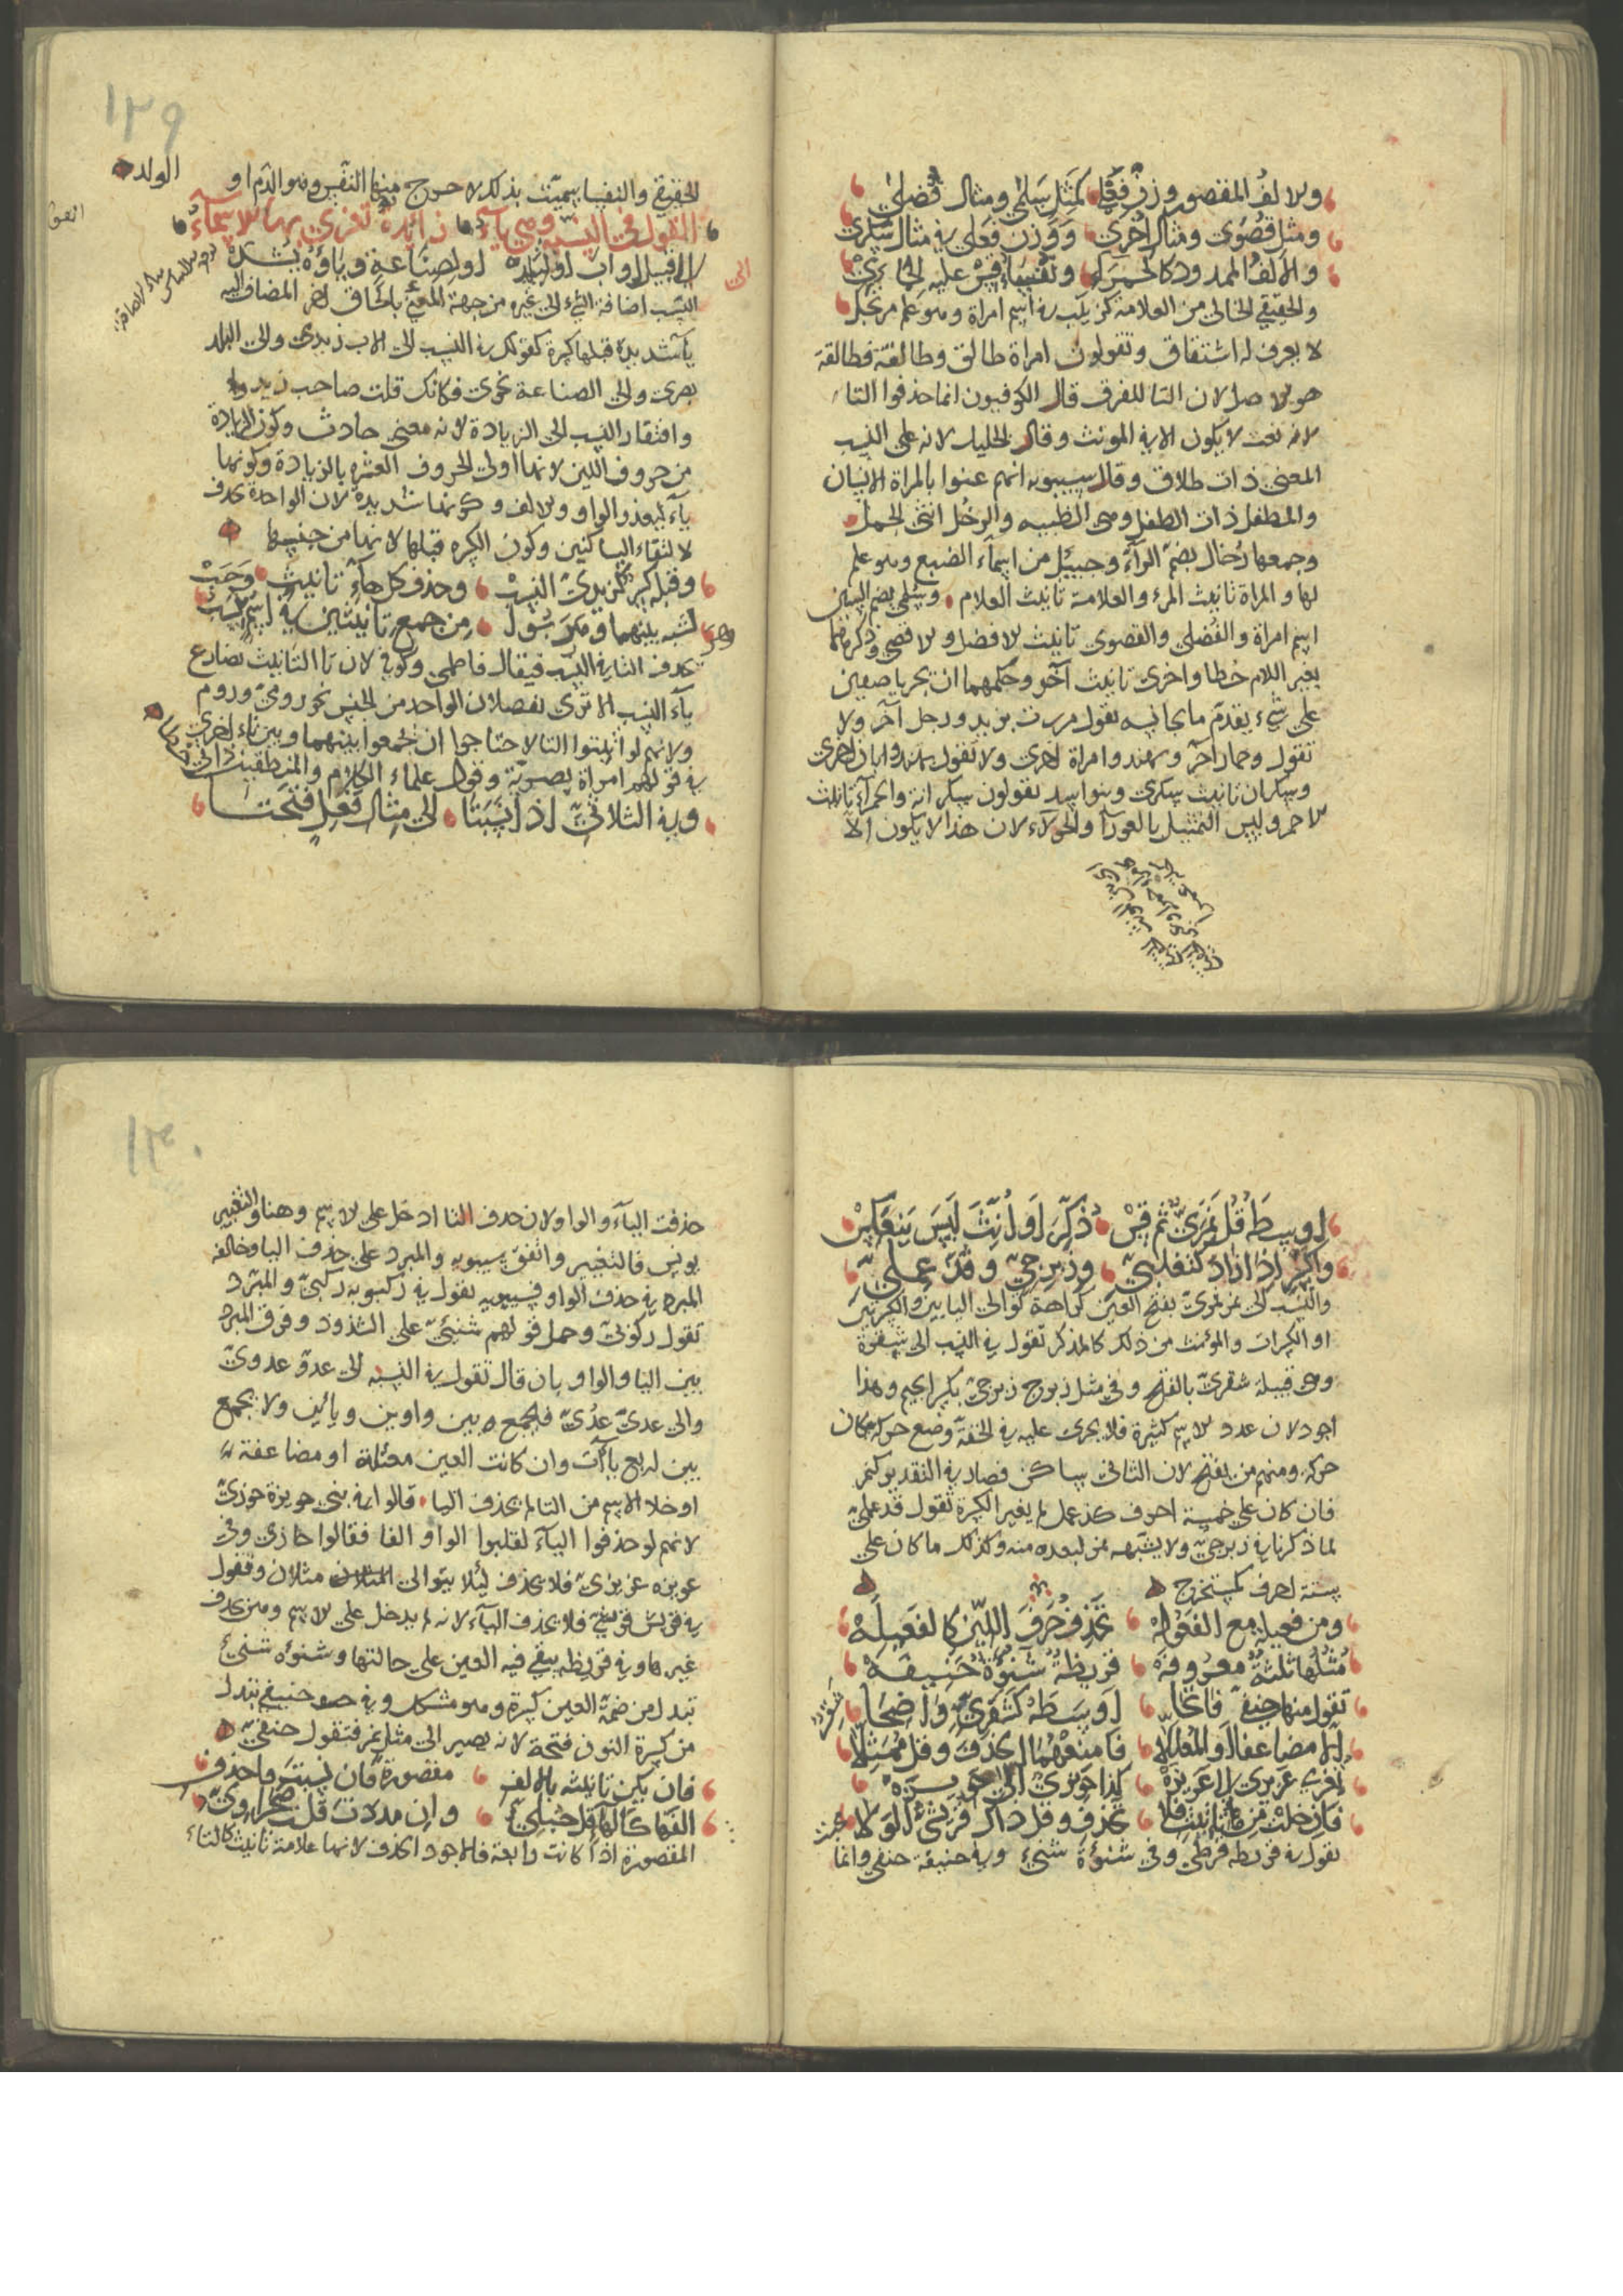 والالف المقصور وزن فعلى كمثل سلمى ومثال فضلى
ومثل قصوى ومثال اخرى ووزن فعلى في مثال سكرى
والالف الممدود كالحمراء ونفساء قس عليه
والحقيقي الخالي من العلامة كزينب في اسم امراة وهو علم مرتجل
لا يعرف له اشتقاق وتقولون امراة طالق وطالقة فطالقة
هو الاصل لان التا للفرق قال الكوفيون انما حذفوا التا
لانه نعت لا يكون الا في المونث وقال الخليل لانه على النسب
المعنى ذات طلاق وقال سيبويه انهم عنوا بالمراة الانسان
والمطفل ذات الطفل وهي الظبيه والرخل انثى الحمل
وجمعها رخال بضم الرآء وجيئل من اسمآء الضبع وهو علم
لها والمراة تانيث المرء والعلامة تانيث العلام وسلمى بضم السين
اسم امراة والفضلى والقصوى تانيث الافضل والاقصى وذكرهما
بغير اللام خطا واخرى تانيث آخر وحكمهما ان تجريا صفين
على شيء تقدم ما يجانسه تقول مررت بزيد ورجل آخر ولا
تقول وحمار آخر وبهند وامراة اخرى ولا تقول بهند واتان اخرى
وسكران تانيث سكرى وبنو اسد تقولون سكرانة والحمرآء تانيث
الاحمر وليس التمثيل بالعورآ والحولاء لان هذا لا يكون الا
١٢٩
الحقيقي والنفسا سميت بذلك لاخراج منها النفس وهو الدم او الولد
القول في النسبه وهي يآء زائدة تعزى بها الاسمآء
الى القبيل او اب او بلدة او لصناعة وياؤه يشدده
النسب اضافة الشيء الى غيره من جهة المعنى بالحاق اخر المضاف اليه
يآ مشددة قبلها كسرة كقولك في النسب الى الاب زيدي والى البلد
بصري والى الصناعة نحوي فكانك قلت صاحب زيد
وافتقار النسب الى الزيادة لانه معنى حادث وكون الزيادة
من حروف اللين لانها اولى الحروف العشره بالزيادة وكونها
يآء لبعد الواو والالف وكونها شديدة لان الواحدة تحذف
لالتقاء الساكنين وكون الكسره قبلها لانها من جنسها
وقبله كسر كزيدي النسب وحذف كل هآء تانيث وجب
لشبه بينهما من جمع تانيثين في اسم
تحذف التا في النسب فيقال فاطمي وكوفي لان تا التانيث تضارع
يآء النسب الا ترى تفصلان الواحد من الجنس نحو رومي وروم
ولانهم لو اثبتوا التا لاحتاجوا ان يجمعوا بينهما وبين تاء اخرى
في قولهم امراة بصرية وقول علماء الكلام والمنطقيين ذاتي
وفي الثلاثي اذا نسبتا الى مثال فعل فتحتا
او سطه قل نمري ثم قس ذكر او انث ليس ينعكس
واكسر اذا زاد كتغلبي وزبرجي وقذعملي
والنسب الى نمر نمري بفتح العين كراهة توالي اليا يين والكسرتين
او الكسرات والمونث من ذلك كالمذكر تقول في النسب الى شقرة
وهي قبيلة شقري بالفتح وفي مثل زبرج زبرجي بكسر الجيم وهذا
اجود لان عدد الاسم كثيرة فلا يجري عليه في الخفة وضع حركة مكان
حركة ومنهم من يفتح لان الثاني ساكن فصار في التقدير كنمر
فان كان على خمسة احرف كقذعمل لم يغير الكسرة تقول قذعملي
لما ذكرنا في زبرجي ولا يشبه نمر لبعده منه وكذلك ما كان على
ستة احرف كمستخرج
ومن فعيلة مع الفعوله تحذف حرف اللين كالفعيله
مثلها ثلثة معروفه قريظة شنوءة حنيفه
تقول منها حنفي فاتحا اوسطه كشقري واضحا
الا مضاعفا او المعللا فامنعهما الحذف وقل ممثلا
تعزي عزيزي الى عزيزه كذا حويزي الى حويزه
فان خلت من هاء تانيث فلا تحذف وقل ذاك قريشي الولا
تقول في قريظه قرظي وفي شنوءة شنئي وفي حنيفة حنفي وانما
١٣٠
حذفت اليآء والواو لان حذف التا ادخل على الاسم وهنا والتغيير
يونس بالتغيير واتفق سيبويه والمبرد على حذف اليا وخالفه
المبرد في حذف الواو فسيبويه تقول في ركوبه ركبي والمبرد
تقول ركوبي وحمل قولهم شنئي على الشذوذ وفرق المبرد
بين اليا والواو بان قال تقول في النسبه الى عدو عدوي
والى عدي عدوي فتجمع بين واوين ويائين ولا تجمع
بين اربع يآآت وان كانت العين معتلة او مضاعفة
او خلا الاسم من التا لم تحذف اليا قالوا في بني حويزة حوزي
لانهم لو حذفوا اليآء لقلبوا الواو الفا فقالوا حازي وفي
عزيزه عزيزي فلا تحذف ليلا يتوالى مثلان وتقول
في قريش قريشي فلا تحذف اليآء لانه لم يدخل على الاسم ومن حذف
غيرها وفي قريظه يبقى فيه العين على حالتها وشنوءه شنئي
تبدل من ضمة العين كسرة وهو مشكل وفي حنيفه تبدل
من كسرة النون فتحة لانه يصير الى مثل نمر فتقول حنفي
فان يكن تانيثه بالالف مقصورة فان نسبت فاحذف
الفها كقل حبلي وان مددت قلت صحراوي
المقصورة اذا كانت رابعة فالاجود الحذف لانها علامة تانيث كالتاء